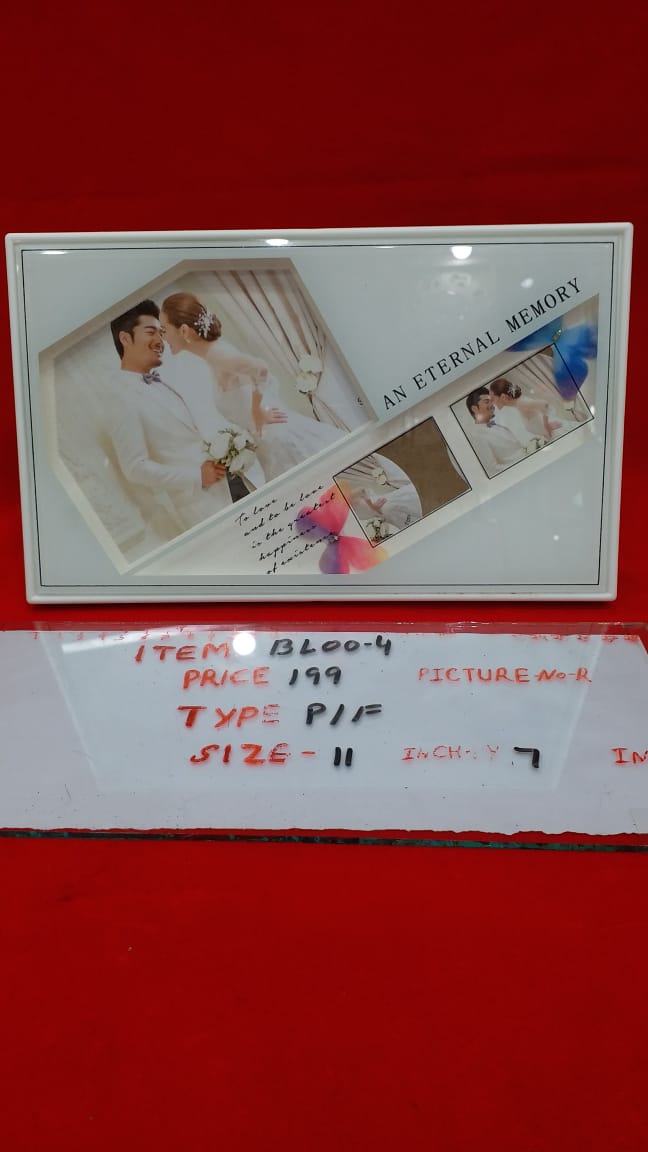 AN ETERNAL MEMORY
To love
and to be love
is the greatest
happiness
of existence
ITEM BL00-4
PRICE 199 PICTURE-NO-R
TYPE P/F
SIZE - 11 INCH 7 IN